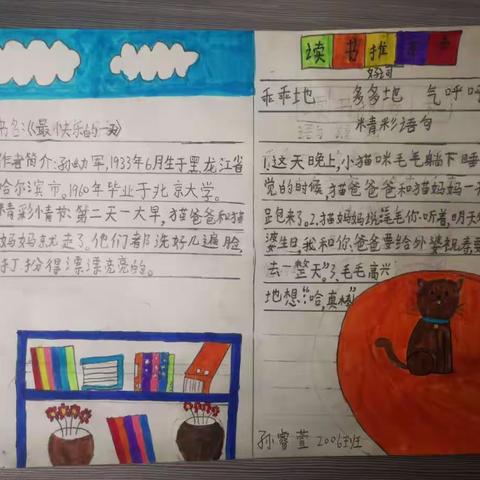 书名:《最快乐的一天》
作者简介:孙幼军,1933年6月生于黑龙江省
哈尔滨市。1960年毕业于北京大学。
精彩情节 第二天一大早,猫爸爸和猫
妈妈就走了。他们都洗好几遍脸,
打扮得漂漂亮亮的。
读书推荐卡
好词
乖乖地 多多地 气呼呼
精彩语句
1.这天晚上,小猫咪毛毛躺下睡
觉的时候,猫爸爸和猫妈妈一
起来了。2.猫妈妈说:毛毛你听着,明天外
婆生日,我和你爸爸要给外婆祝寿要
去一整天。”3.毛毛高兴
地想:“哈,真棒”
孙睿萱 2006班